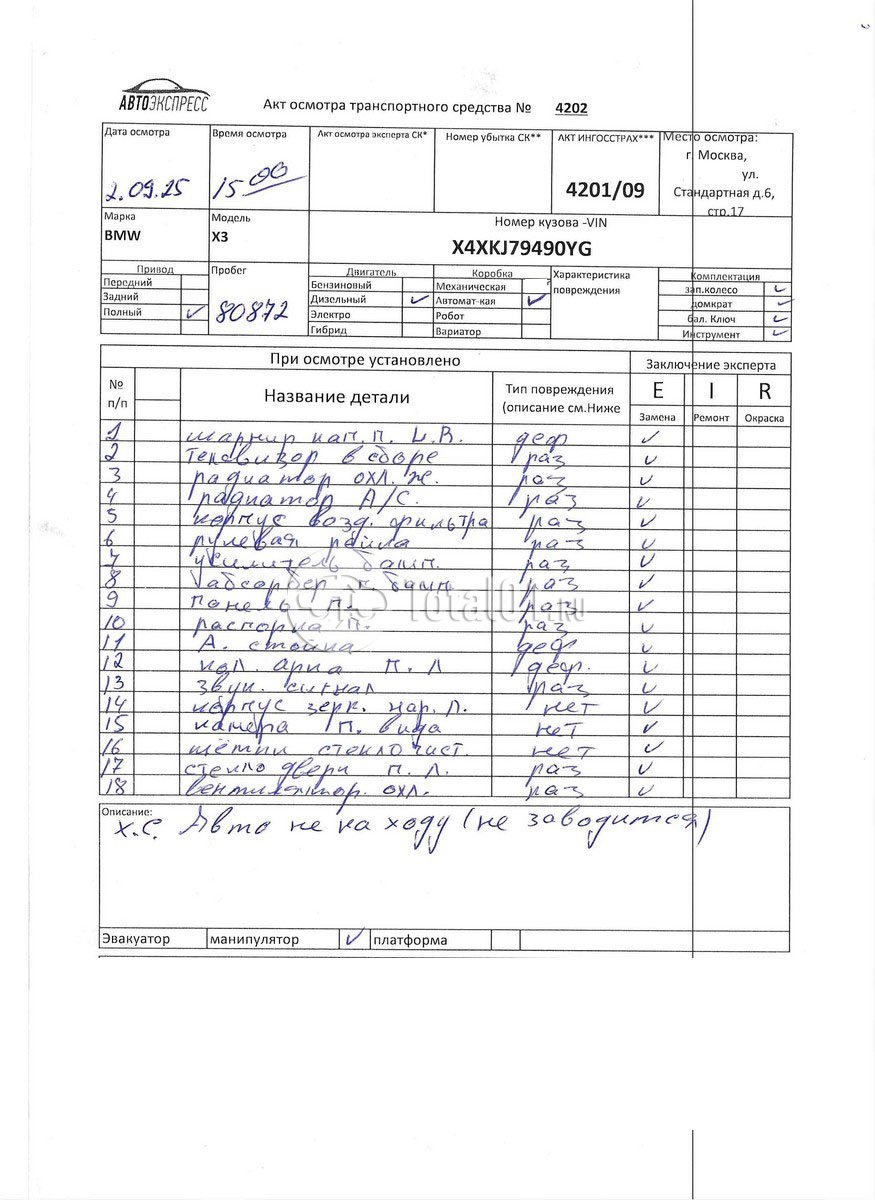 АВТОЭКСПРЕСС
Акт осмотра транспортного средства № 4202
Дата осмотра
Время осмотра
Акт осмотра эксперта СК*
Номер убытка СК**
АКТ ИНГОССТРАХ***
Место осмотра:
г. Москва,
ул.
Стандартная д.6,
стр.17
2.09.25
15 00
4201/09
Марка
Модель
Номер кузова -VIN
BMW
X3
X4XKJ79490YG
Привод
Пробег
Двигатель
Коробка
Характеристика
повреждения
Комплектация
Передний
Бензиновый
Механическая
зап.колесо
Задний
Дизельный
Автомат-кая
домкрат
Полный
80872
Электро
Робот
бал. Ключ
Гибрид
Вариатор
Инструмент
При осмотре установлено
Заключение эксперта
№
п/п
Название детали
Тип повреждения
(описание см.Ниже
E I R
Замена Ремонт Окраска
1 шарнир кап. п. L.R. деф
2 телевизор в сборе раз
3 радиатор охл. ж. раз
4 радиатор A/C. раз
5 корпус возд. фильтра раз
6 рулевая рейка раз
7 усилитель бамп. раз
8 абсорбер п. бамп. раз
9 панель п. раз
10 распорка п. раз
11 А. стойка деф
12 кол. арка п. л деф.
13 звук. сигнал раз
14 корпус зерк. нар. л. нет
15 камера п. вида нет
16 щётки стеклочист. нет
17 стекло двери п. л. раз
18 вентилятор. охл. раз
Описание:
х.с. Авто не на ходу (не заводится)
Эвакуатор манипулятор платформа
Total01.ru